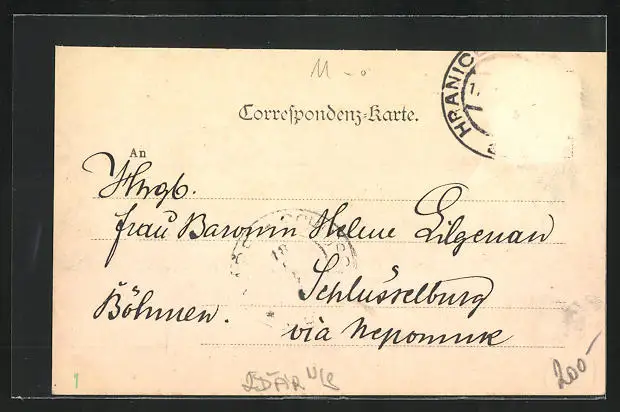 11-0
HRANIC
Correspondenz-Karte.
An
Hwgb.
Frau Baronin Helene Lilgenau
Schlüsselburg
Böhmen.
via Nepomuk
200-